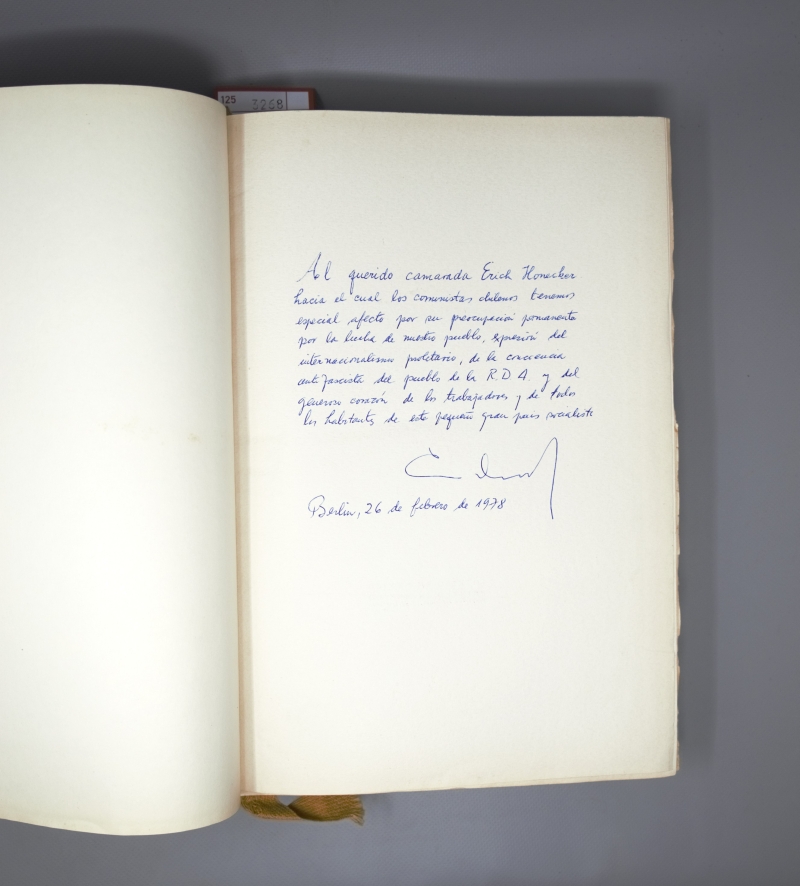 125
3268
Al querido camarada Erich Honecker
hacia el cual los comunistas chilenos tenemos
especial afecto por su preocupación permanente
por la lucha de nuestro pueblo, expresión del
internacionalismo proletario, de la conciencia
antifascista del pueblo de la R.D.A. y del
generoso corazón de los trabajadores y de todos
los habitantes de este pequeño gran país socialista
Berlin, 26 de febrero de 1978